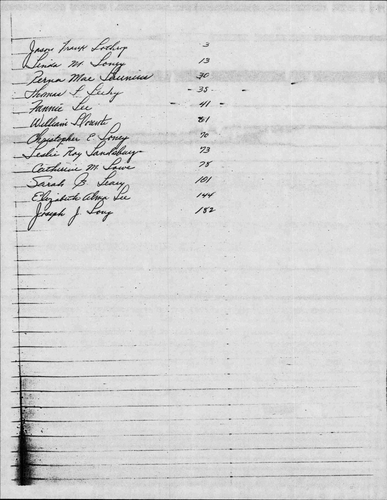 Jason Frank Lothup 3
Linda M. Loney 13
Verna Mae 30
Thomas F. Leahy - 35 -
Fannie Lee - 41 -
William 61
Christopher C. Loney 70
Leslie Roy Landsburg 73
Catherine M. Lowe 78
Sarah B. Leary 101
Elizabeth Alma Lee 144
Joseph J. Long 182